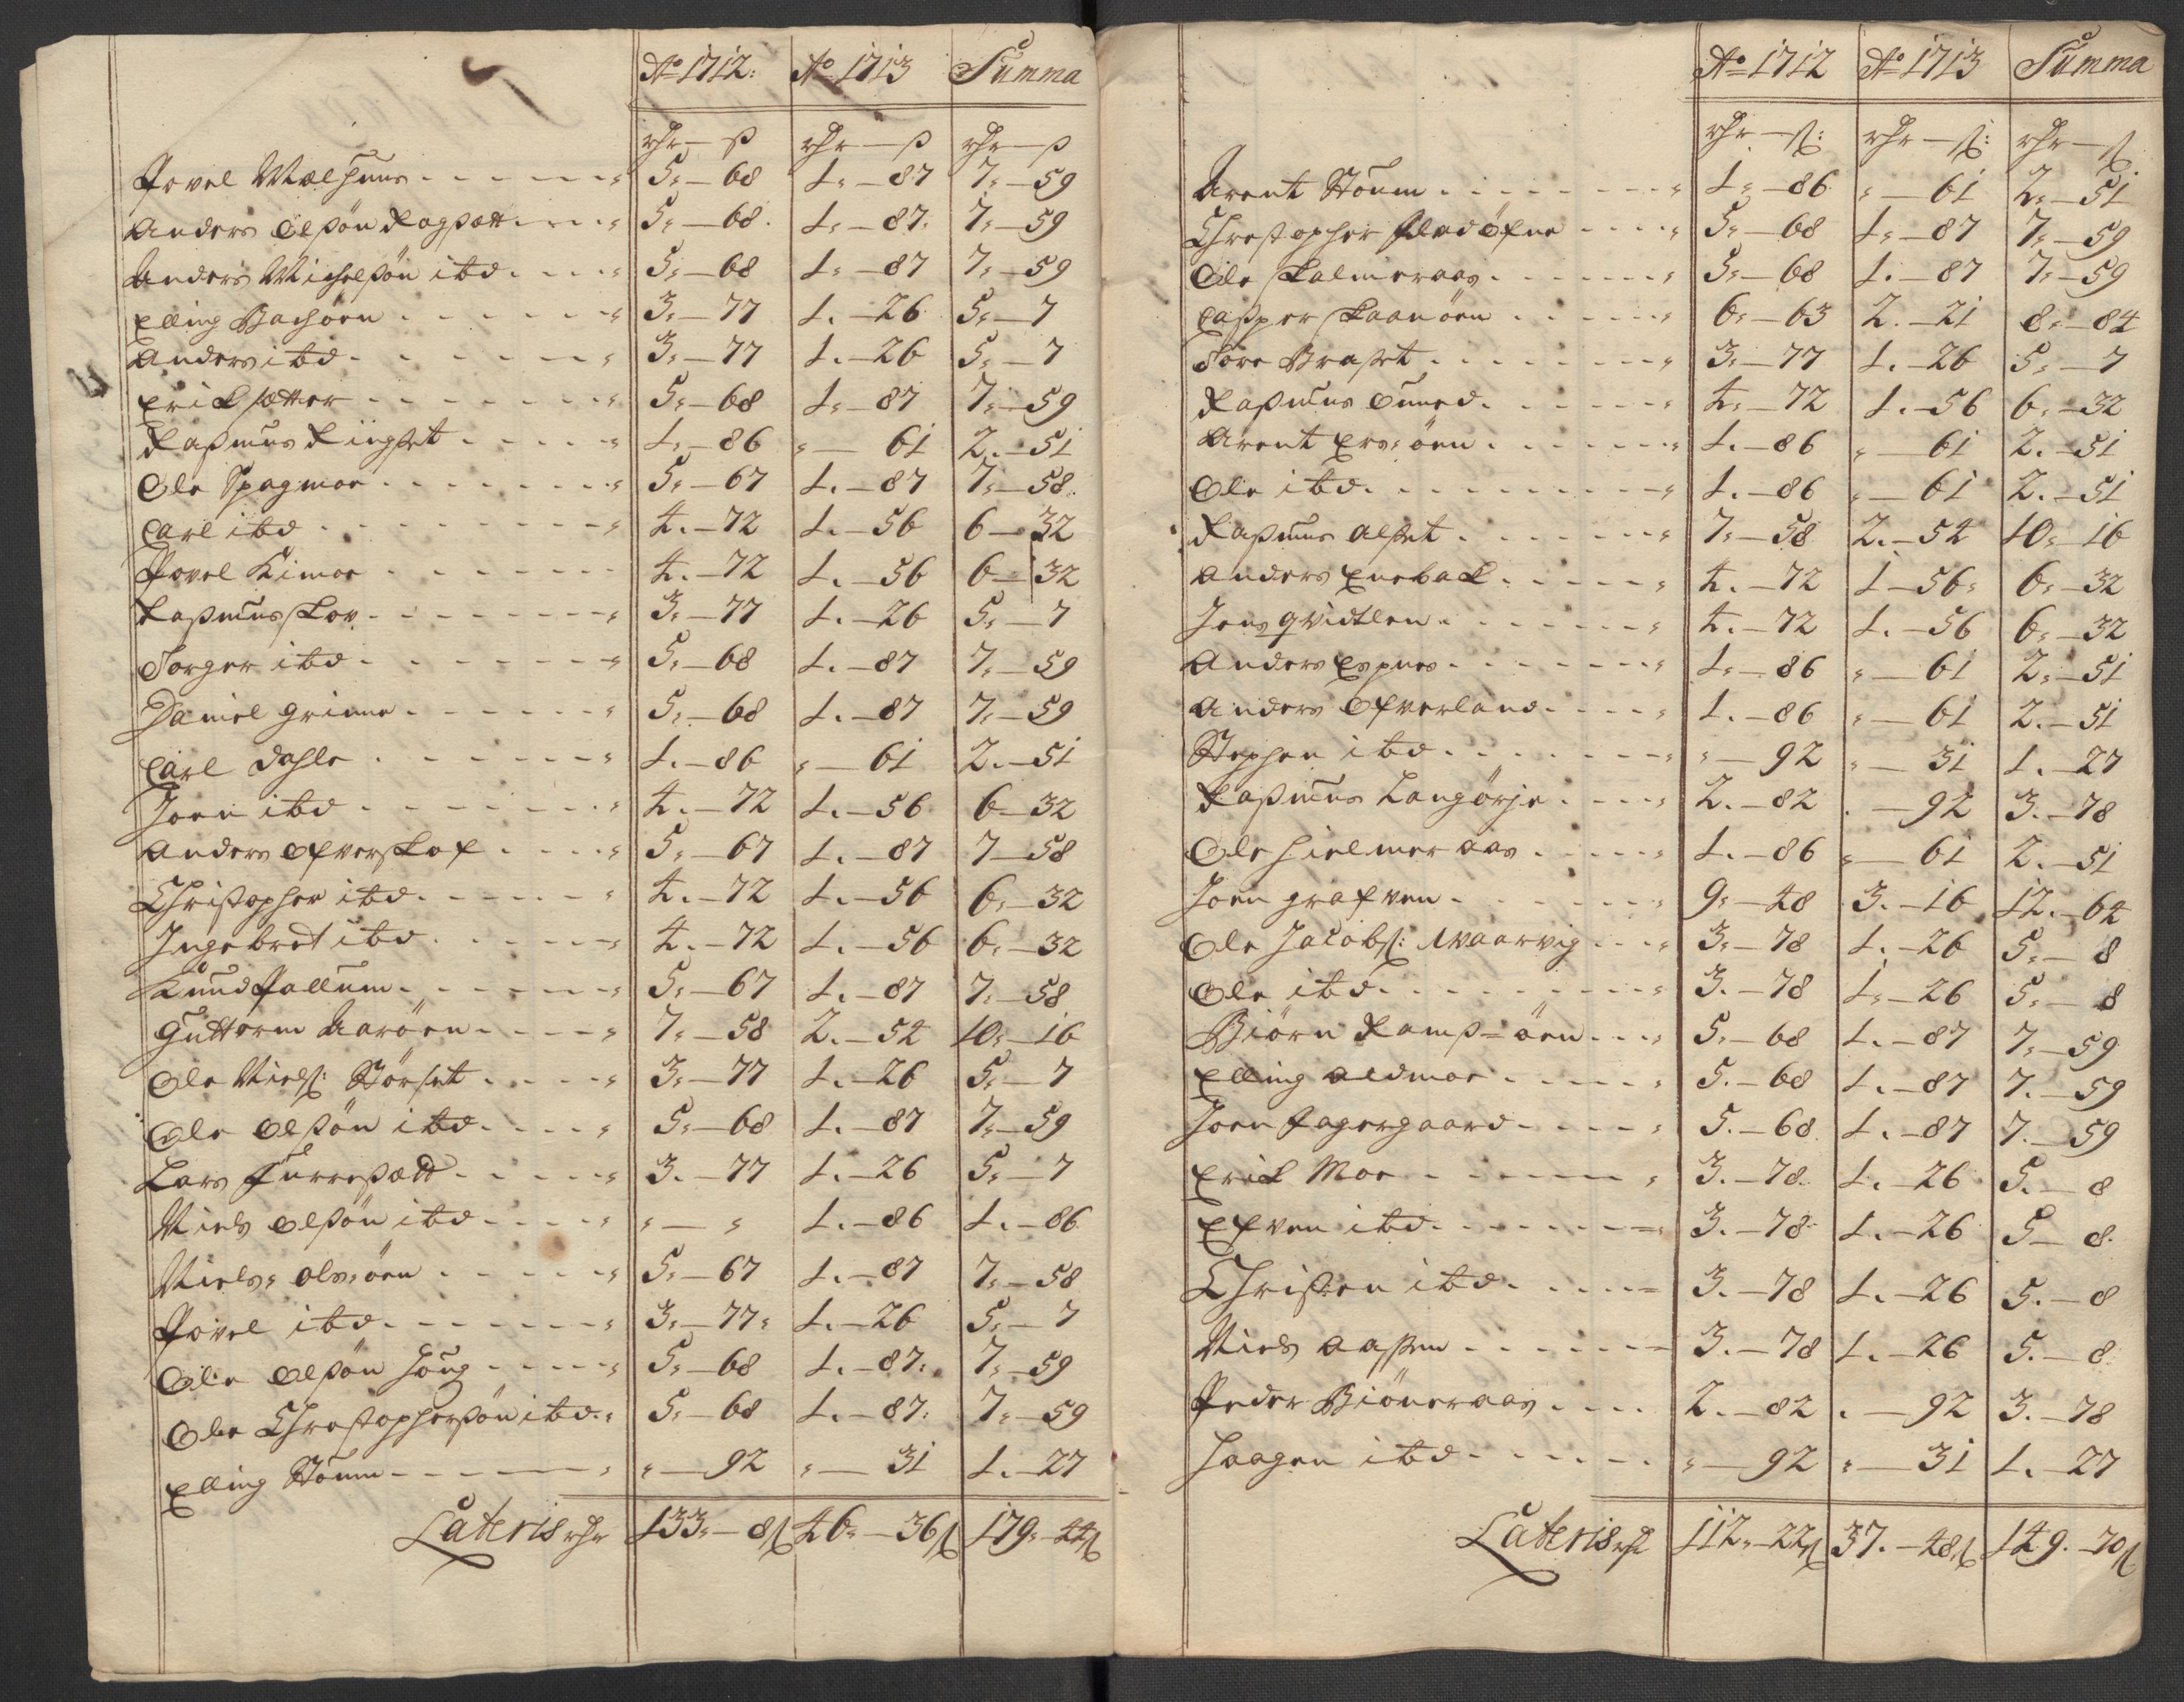 Ao 1712: Ao 1713 Summa
rhr — ß rhr — ß rhr — ß
Povel Mælhuus 5 — 68 1 — 87 7 — 59
Anders Olßøn Ragßætt 5 — 68 1 — 87 7 — 59
Anders Michelßøn ibd 5 — 68 1 — 87 7 — 59
Elling Bachøen 3 — 77 1 — 26 5 — 7
Anders ibd 3 — 77 1 — 26 5 — 7
Erick sætter 5 — 68 1 — 87 7 — 59
Raßmus Ringset 1 — 86 " — 61 2 — 51
Ole Spagmoe 5 — 67 1 — 87 7 — 58
Carl ibd 4 — 72 1 — 56 6 — 32
Povel Kimoe 4 — 72 1 — 56 6 — 32
Raßmus Kov 3 — 77 1 — 26 5 — 7
Torger ibd 5 — 68 1 — 87 7 — 59
Daniel Grinne 5 — 68 1 — 87 7 — 59
Carl Dahle 1 — 86 " — 61 2 — 51
Joen ibd 4 — 72 1 — 56 6 — 32
Anders Ofverskof 5 — 67 1 — 87 7 — 58
Christopher ibd 4 — 72 1 — 56 6 — 32
Ingebret ibd 4 — 72 1 — 56 6 — 32
Knud Pallum 5 — 67 1 — 87 7 — 58
Guttorm Aarøen 7 — 58 2 — 54 10 — 16
Ole Nielß: Størset 3 — 77 1 — 26 5 — 7
Ole Olßøn ibd 5 — 68 1 — 87 7 — 59
Lars Furresætt 3 — 77 1 — 26 5 — 7
Niels Olßøn ibd " — " 1 — 86 1 — 86
Niels Olsøen 5 — 67 1 — 87 7 — 58
Povel ibd 3 — 77 1 — 26 5 — 7
Ole Olßøn Houg 5 — 68 1 — 87 7 — 59
Ole Christopherßøn ibd 5 — 68 1 — 87 7 — 59
Elling Stoum " — 92 " — 31 1 — 27
Lateris rhr 133 — 8ß 46 — 36ß 179 — 44ß
Ao 1712 Ao 1713 Summa
rhr — ß: rhr — ß: rhr — ß
Arent Stoum 1 — 86 " — 61 2 — 51
Christopher Fladøfne 5 — 68 1 — 87 7 — 59
Ole Kalmeraas 5 — 68 1 — 87 7 — 59
Casper Kaanøen 6 — 63 2 — 21 8 — 84
Tore Braset 3 — 77 1 — 26 5 — 7
Raßmus Ouned 4 — 72 1 — 56 6 — 32
Arent Ersøen 1 — 86 " — 61 2 — 51
Ole ibd 1 — 86 " — 61 2 — 51
Raßmus Alset 7 — 58 2 — 54 10 — 16
Anders Eneback 4 — 72 1 — 56 6 — 32
Jens Qvidtlen 4 — 72 1 — 56 6 — 32
Anders Espnes 1 — 86 " — 61 2 — 51
Anders Ofverland 1 — 86 " — 61 2 — 51
Stephen ibd " — 92 " — 31 1 — 27
Raßmus Langørje 2 — 82 — 92 3 — 78
Ole Hielmeraas 1 — 86 " — 61 2 — 51
Joen Grafven 9 — 48 3 — 16 12 — 64
Ole Jacobß: Waarvig 3 — 78 1 — 26 5 — 8
Ole ibd 3 — 78 1 — 26 5 — 8
Biørn Ramß=øen 5 — 68 1 — 87 7 — 59
Elling Aldmoe 5 — 68 1 — 87 7 — 59
Joen Fagergaard 5 — 68 1 — 87 7 — 59
Erick Moe 3 — 78 1 — 26 5 — 8
Efven ibd 3 — 78 1 — 26 5 — 8
Christen ibd 3 — 78 1 — 26 5 — 8
Niels Aaßen 3 — 78 1 — 26 5 — 8
Peder Biøneraas 2 — 82 — 92 3 — 78
Haagen ibd " — 92 " — 31 1 — 27
Lateris rhr 112 — 22ß 37 — 48ß 149 — 70ß